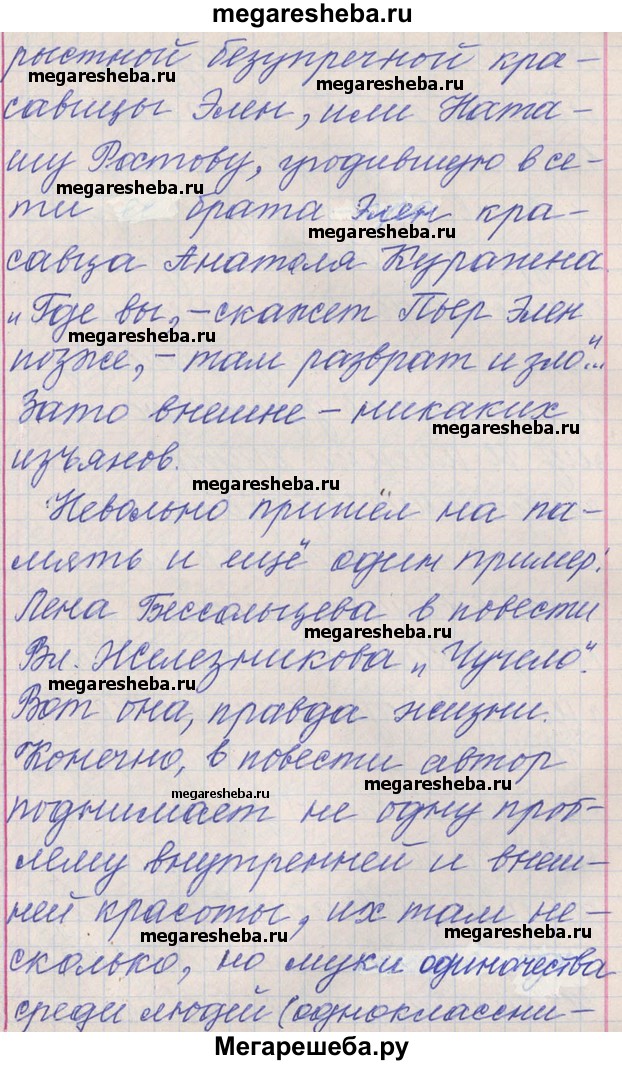 megaresheba.ru
рыстной безупречной кра-
megaresheba.ru megaresheba.ru
савицы Элен, или Ната-
шу Ростову, угодившую в се-
megaresheba.ru
ти брата Элен кра-
megaresheba.ru
савца Анатоля Курагина.
„Где вы, – скажет Пьер Элен
megaresheba.ru
позже, – там разврат и зло“...
Зато внешне – никаких
megaresheba.ru
изъянов.
megaresheba.ru
Невольно пришёл на па-
мять и ещё один пример:
Лена Бессольцева в повести
megaresheba.ru
Вл. Железникова „Чучело“.
megaresheba.ru
Вот она, правда жизни.
Конечно, в повести автор
megaresheba.ru
megaresheba.ru
поднимает не одну проб-
лему внутренней и внеш-
ней красоты, их там не-
megaresheba.ru megaresheba.ru
сколько, но муки одиночества
среди людей (одноклассни-
Мегарешеба.ру